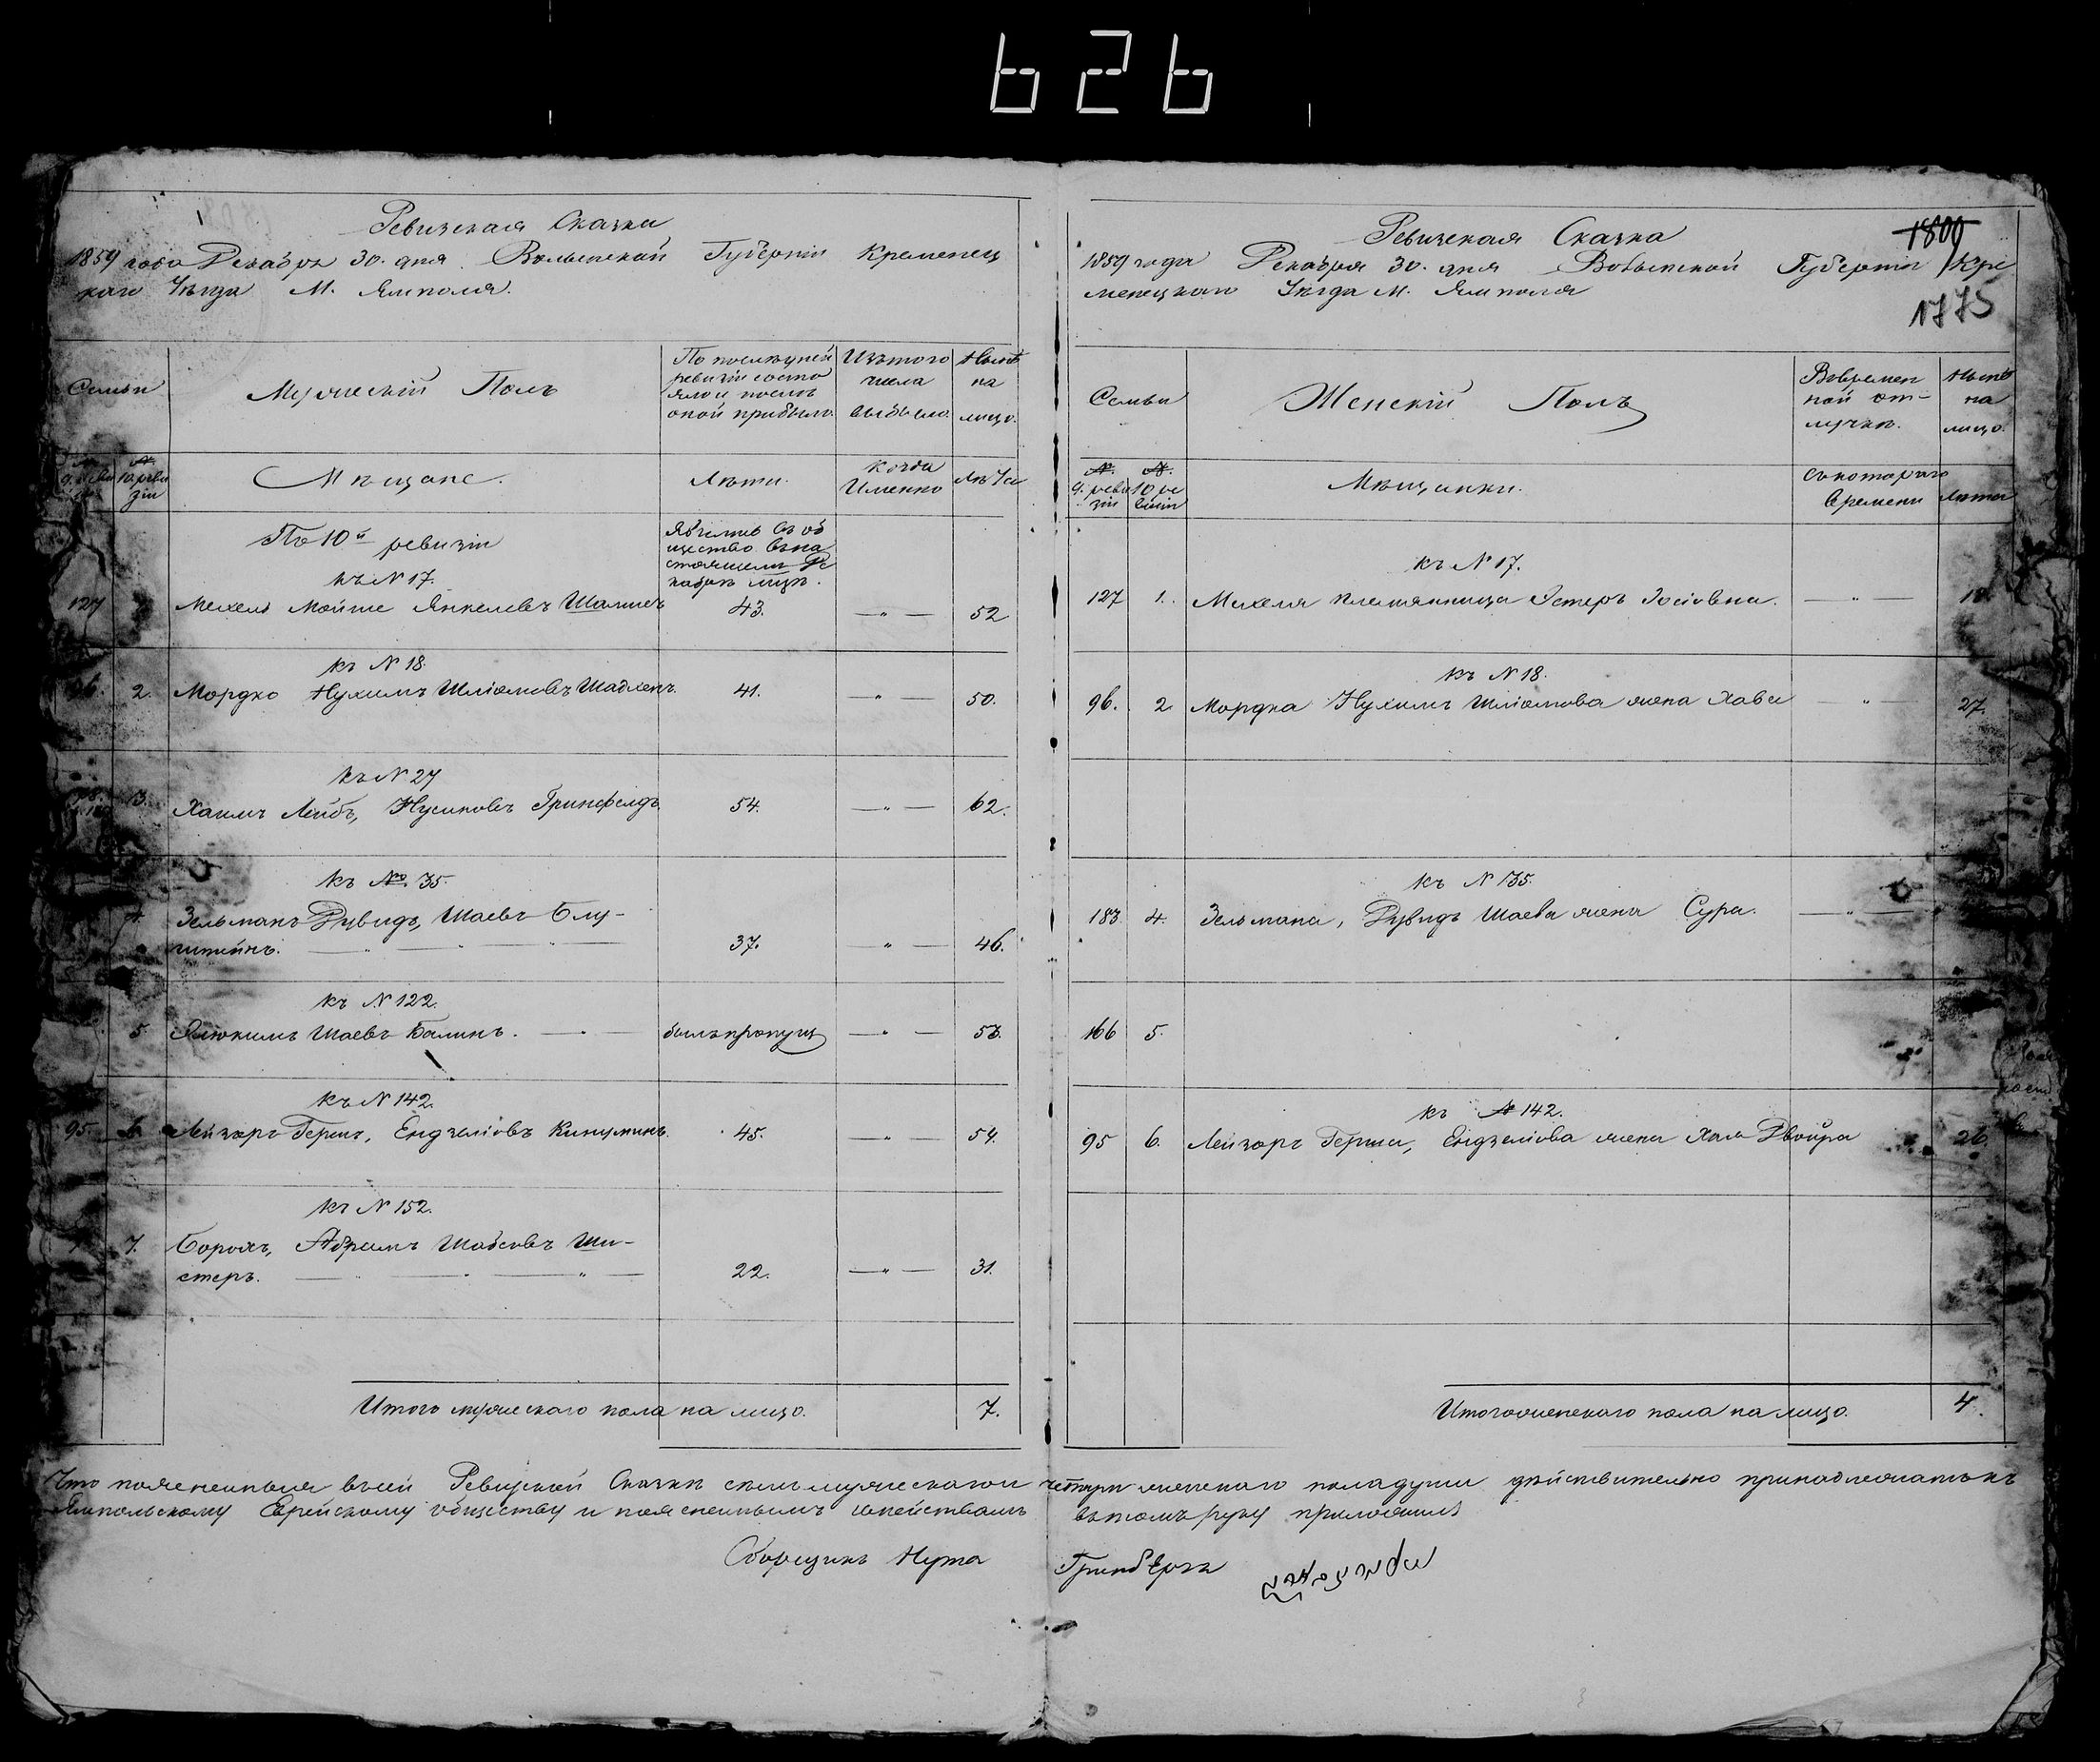 626
Ревизская Сказка
1859 года Декабря 30. дня Волынской Губерніи Кременец
каго Уѣзда М. Ямполя.
Семьи
Мужескій Полъ
По послѣдней
ревизіи состо
яло и послѣ
оной прибыло
Изътого
числа
выбыло
Нынѣ
на
лицо.
№
9. реви
зіи
№
10. реви
зіи
Мѣщане.
Лѣта.
Когда
Именно
Лѣта
По 10й ревизіи
Явились въ об
щество въна
стоящемъ Де
кабрѣ мцѣ.
къ N 17.
127
Мехель Мойше Янкелевъ
43.
52
къ N 18.
2.
Мордко Нухимъ Шліомовъ Шадхенъ.
41.
50.
къ N 27
3.
Хаимъ Лейбъ, Нусиновъ Гринфелдъ.
54.
62.
къ № 35.
4.
Зельманъ Дувидъ, Шаевъ Блу-
штейнъ.
37.
46.
къ N 122.
5
Шаевъ Балинъ.
былъ пропущ
53.
къ N 142.
95. 6.
Лейзоръ Герш,
45.
54.
къ N 152.
7.
Борохъ, Абрамъ Шабсовъ Ши-
стеръ.
22.
31.
Итого мужескаго пола на лицо.
7.
Ревизская Сказка
1800
1859 года Декабря 30. дня Волынской Губерніи Кре
менецкаго Уѣзда М. Ямполя
1775
Семьи
Женскій Полъ
Вовремен
ной от-
лучкѣ.
Нынѣ
на
лицо.
№
9. реви
зіи
№
10 ре
визіи
Мѣщанки.
Съкотораго
времени
Лѣта
къ N 17.
127 1. Мехеля племянница Эстеръ Іосіовна.
къ N 18.
96. 2 Мордка Нухимъ Шліомова жена Хава
27.
къ N 35.
183 4. Зельмана, Дувидъ Шаева жена Сура.
166 5.
къ № 142.
95 6. Лейзоръ Герша, жена Хая Двойра
26.
Итого женскаго пола на лицо.
4.
Что поясненныя въсей Ревизской Сказкѣ семь мужескаго и четыри женскаго пола души дѣйствительно принадлежатъ къ
Ямпольскому Еврейскому обществу и поясненнымъ семействамъ въ томъ руку приложилъ
Сборщикъ Нута Гринбергъ